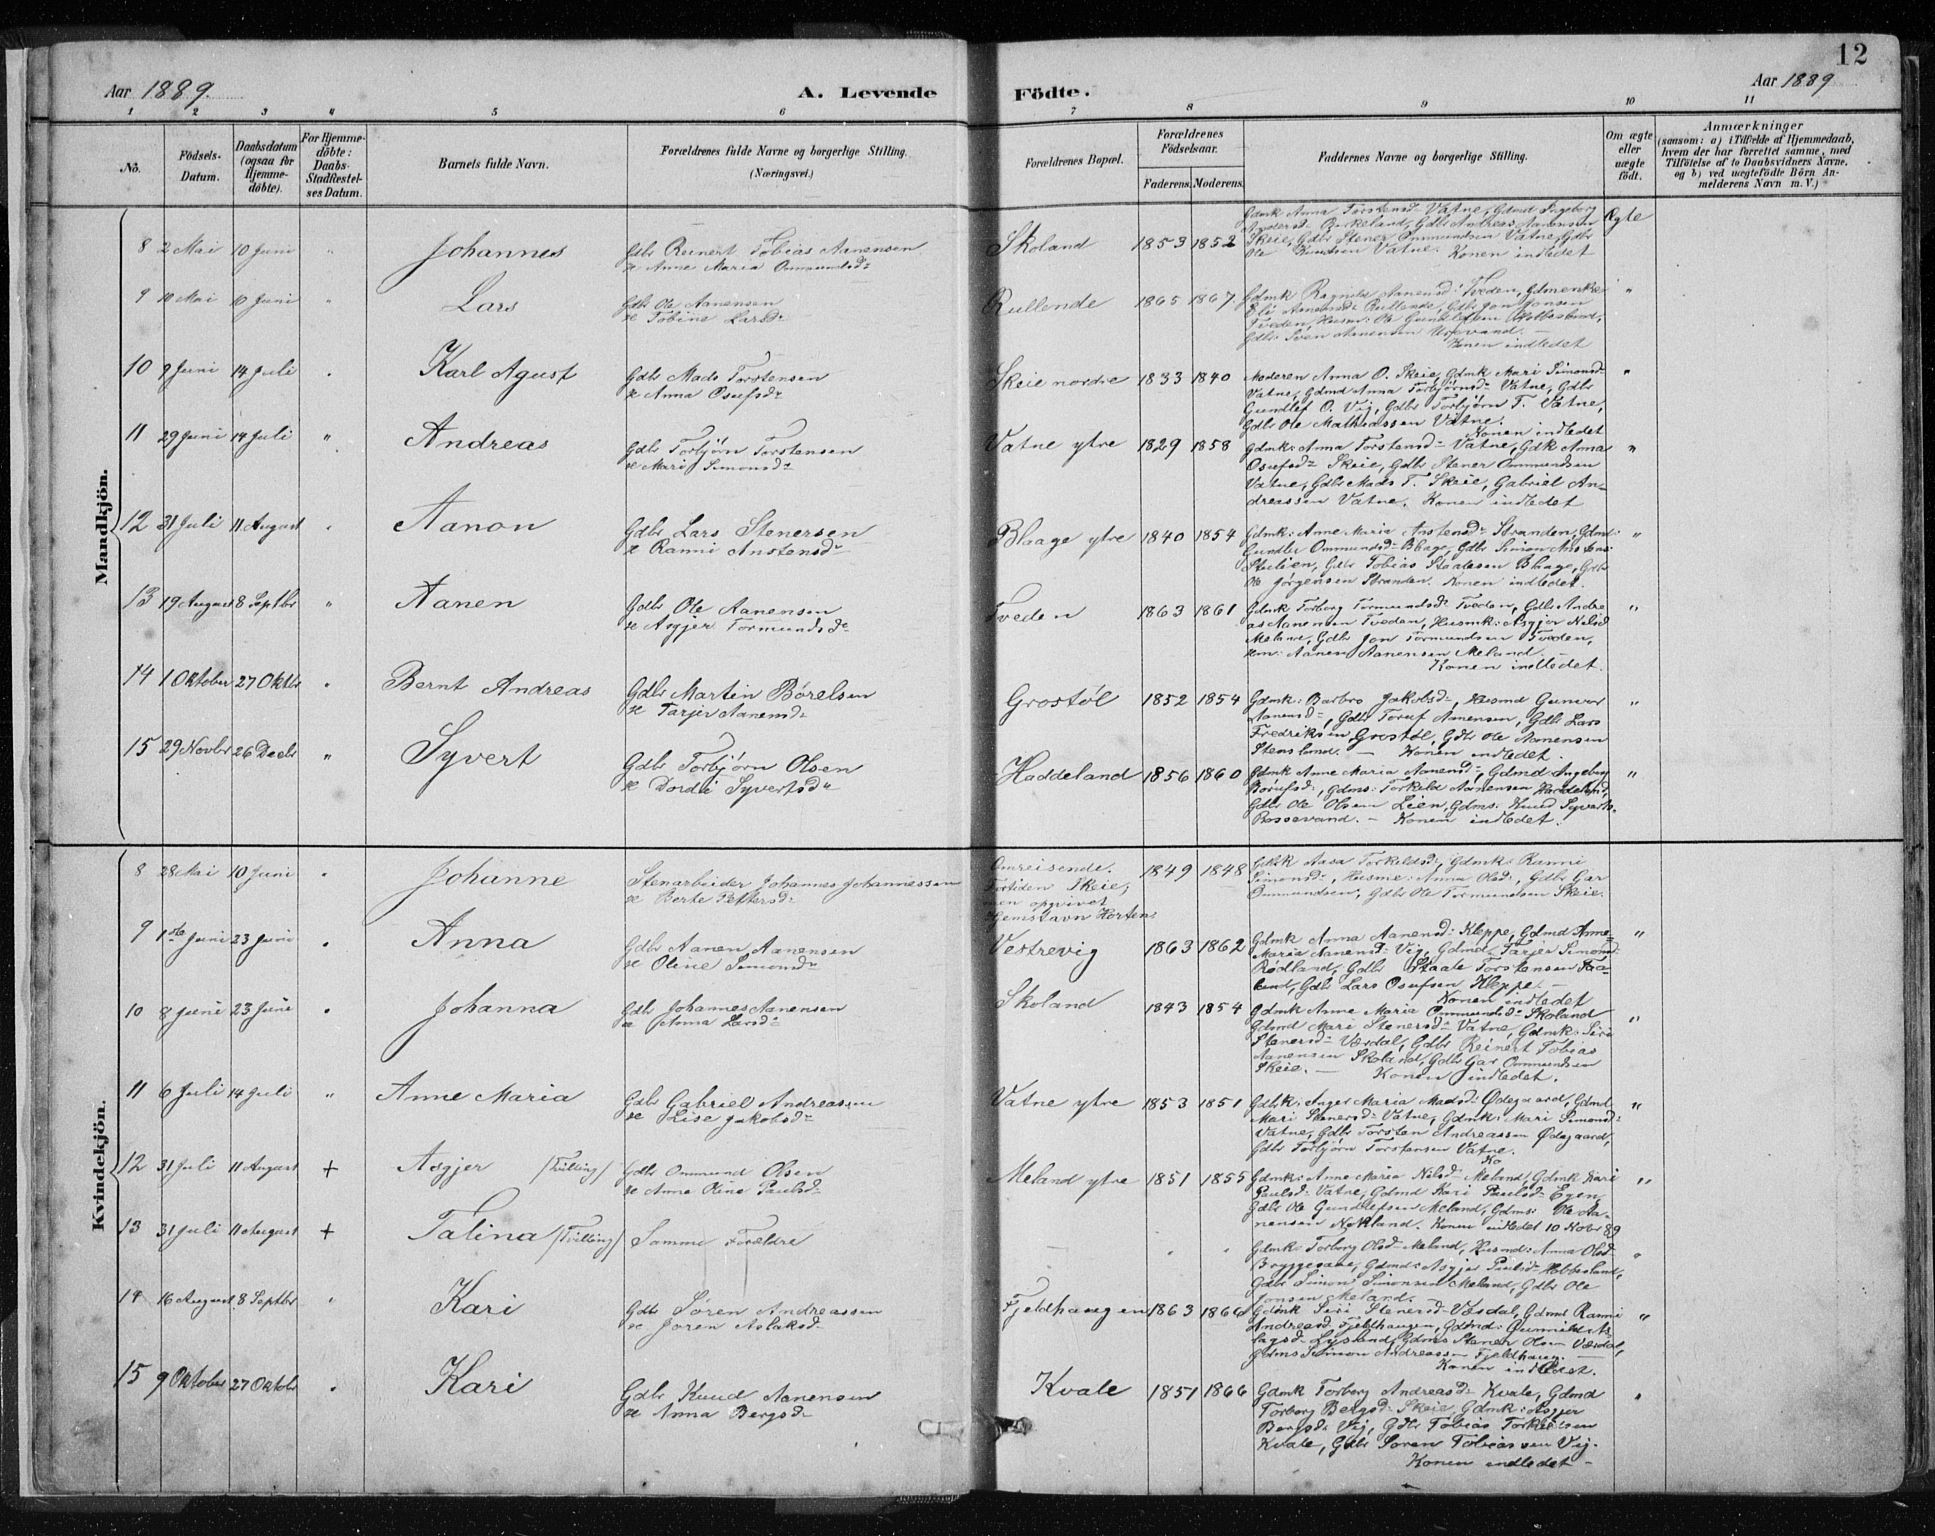 12
Aar 1889.
A. Levende
Födte.
Aar 1889
1 2 3 " 5 6 7 8 9 10 11
No.
Födsels-Datum.
Daabsdatum (ogsaa for Hjemmedöbte).
For Hjemmedöbte: Daabs-Stadfæstelses Datum.
Barnets fulde Navn.
Forældrenes fulde Navne og borgerlige Stilling.
(Næringsvei.)
Forældrenes Bopæl.
Forældrenes Födselsaar.
Faderens. Moderens.
Faddernes Navne og borgerlige Stilling.
Om ægte eller uægte födt.
Anmærkninger
(saasom: a) i Tilfælde af Hjemmedaab,
hvem der har forrettet samme, med
Tilföielse af to Daabsvidners Navne.
og b) ved uægtefödte Börn An-
melderens Navn m. V.)
Mandkjön.
8 2 Mai 10 Juni " Johannes
Gdbr Reinert Tobias Aanensen
& Anne Maria Ommundsdr
Skoland 1853 1852
Gdmk Anna Torstensd Vatne, Gdmd Ingeborg
Birkeland, Gdbr Andreas Aanensen
Skeie, Gdbr Stener Ommundsen Vatne, Gdbr
Ole Knudsen Vatne. Konen indledet
Ægte
9 10 Mai 10 Juni " Lars
Gdbr Ole Aanensen
& Tobine Larsdr
Rullende 1865 1867
Gdmk Ragnild Aanensd Tveden,
Eli Aanensd Rullende, Gdbr Jon Jonsen
Tveden, Husm: Ole Gundlefsen
Gdbr Sven Aanensen
Konen indledet
"
10 9 Juni 14 Juli " Karl Agust
Gdbr Mads Torstensen
& Anna Osufsdr
Skeie nordre 1833 1840
Moderen Anna O. Skeie, Gdmk Mari Simonsd
Vatne, Gdmd Anna Torbjørnsd Vatne, Gdbr
Gundlef O. Vig, Gdbr Torbjørn T. Vatne,
Gdbr Ole Mathiassen Vatne.
Konen indledet
"
11 29 Juni 14 Juli " Andreas
Gdbr Torbjørn Torstensen
& Mari Simonsdr
Vatne ytre 1829 1858
Gdmk: Anna Torstensd Vatne, Gdk Anna
Osufsd Skeie, Gdbr Stener Ommundsen
Vatne, Gdbr Mads T. Skeie, Gabriel An-
dreassen Vatne. Konen indledet
"
12 31 Juli 11 August " Aanon
Gdbr Lars Stenersen
& Ranni Anstensdr
Blaage ytre 1840 1854
Gdmk: Anne Maria Anstensd Stranden, Gdmd:
Ommundsd Blage, Gdbr Simon Anstens:
Gdbr Tobias Staalesen Blaage, Gdbr
Ole Jørgensen Stranden. Konen indledet.
"
13 19 August 8 Septbr " Aanen
Gdbr Ole Aanensen
& Asgjer Tormundsdr
Tveden 1863 1861
Gdmk Torborg Tormundsd Tveden, Gdbr Andre
as Aanensen Tveden, Husmk: Asgjer Nilsd
Meland, Gdbr Jon Tormundsen Tveden,
Aanen Aanensen Meland.
Konen indledet.
"
14 1 Oktober 27 Oktbr " Bernt Andreas
Gdbr Martin Børelsen
& Tarjer Aanensd
Grostøl 1852 1854
Gdmk: Barbro Jakobsd, Husmd Gunvor
Aanensd, Gdbr Toruf Aanensen, Gdbr Lars
Fredriksen Grostøl, Gdbr Ole Aanensen
Stensland. — Konen indledet.
"
15 29 Novbr 26 Decbr " Syvert
Gdbr Torbjørn Olsen
& Dordi Syvertsdr
Haddeland 1856 1860
Gdmk Anne Maria Aanensd, Gdmd: Ingeborg
Børufsd, Gdms: Torkeld Aanensen Haddeland,
Gdbr Ole Olsen Lien, Gdms: Knud Syverts-
Rossevand. — Konen indledet.
"
Kvindekjön.
8 28 Mai 10 Juni " Johanne
Stenarbeider Johannes Johannessen
& Berte Pettersd
Omreisende.
Fortiden Skeie,
men opgivet
Hjemstavn Horten:
1849 1848
Gdbk Aasa Torkeldsd, Gdmk: Ranni
Simonsd, Husme: Anna Olsd, Gdbr Gar
Ommundsen, Gdbr Ole Tormundsen Skeie.
9 1ste Juni 23 Juni " Anna
Gdbr Aanen Aanensen
& Oline Simonsdr
Vestrevig 1863 1862
Gdmk Anna Aanensd: Kleppe, Gdmd Anne-
Maria Aanensd Vig, Gdmd Tarjer Simonsd
Rødland, Gdbr Staale Torstensen
Gdbr Lars Osufsen Kleppe. —
Konen indledet
"
10 8 Juni 23 Juni " Johanna
Gdbr Johannes Aanensen
& Anna Larsd
Skoland 1843 1854
Gdmk Anne Maria Ommundsd Skoland
Gdmd Mari Stenersd Vatne, Gdmk: Siri
Stenersd Værdal, Gdbr Reinert Tobias
Aanensen Skoland, Gdbr Gar Ommundsen
Skeie. — Konen indledet.
"
11 6 Juli 14 Juli " Anne Maria
Gdbr Gabriel Andreassen
& Lise Jakobsdr
Vatne ytre 1853 1851
Gdbk: Anger Maria Madsd Ødegaard, Gdmd
Mari Stenersd Vatne, Gdmk: Mari Simonsd
Vatne, Gdbr Torsten Andreassen Ødegaard,
Gdbr Torbjørn Torstensen Vatne.
Ko
"
12 31 Juli 11 August + Asgjer (Tvilling)
Gdbr Ommund Olsen
& Anne Oline Paulsd
Meland ytre 1851 1855
Gdmk: Anne Maria Nilsd Meland, Gdmk Kari
Paulsd Vatne, Gdmd Kari Paulsd Egen,
Gdbr Ole Gundlefsen Meland, Gdms: Ole Aa-
nensen Nokland. Konen indledet 10 Nobr 89
"
13 31 Juli 11 August + Talina (Tvilling)
Samme Forældre
" " "
Gdmk: Torborg Olsd Meland, Husmd: Anna Olsd
Bryggesaae, Gdmd: Asgjer Paulsd Hobbesland,
Gdbr Simon Simonsen Meland, Gdbr Ole
Jonsen Meland.
"
14 16 August 8 Septbr " Kari
Gdbr Søren Andreassen
& Joren Aslaksd
Fjeldhaugen 1863 1866
Gdmk Siri Stenersd Værdal, Gdmd Ranni
Andreasd Fjeldhaugen, Gdmd: Gunnild As-
lagsd Lysland, Gdms Stener Olsen Værdal,
Gdms Simon Andreassen Fjeldhaug. —
Konen indledet.
"
15 9 Oktober 27 Oktobr " Kari
Gdbr Knud Aanensen
& Anna Bergsd
Kvale 1851 1866
Gdmk Torberg Andreasd Kvale, Gdmd
Torborg Bergsd Skeie, Gdmk: Asgjer
Bergsd Vij, Gdbr Tobias Torkelsen
Kvale, Gdbr Soren Tobiassen Vij.
Konen indledet —
"